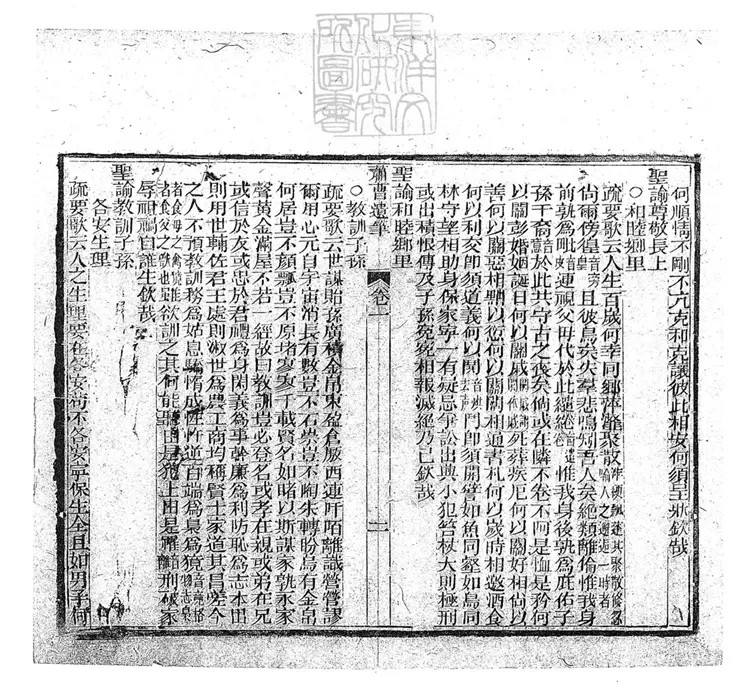 何順情不剛不亢克和克讓彼此相安何須呈狀欽哉
聖諭尊敬長上
○和睦鄉里
疏要歌云人生百歲何幸同鄉萍蹤聚散
尚爾徬徨且彼鳥矣失羣悲鳴矧吾人矣絕類離倫惟我身
前孰為毗連視父母代於此繾綣惟我身後孰為庇佑子
孫千裔於此共守古之喪矣倘或在隣不卷不阿是恤是矜何
以關彭婚姻誕日何以關戚死葬疾厄何以關好相尚以
善何以關惡相戰以愆何以關開相通書札何以歲時相邀酒食
何以利交即須道義何以鬥即須開譬如魚同蓼如鳥同
林守望相助身保家寧一有疑忌爭訟出與小犯笞杖大則極刑
或出積恨傳及子孫冤冤相報滅絕乃已欽哉
聖諭和睦鄉里
蕭曹遺筆
卷一
二
○教訓子孫
疏要歌云世謀貽孫廣積金帛東盈倉廒西連阡陌離識營營謬
爾用心元自宇宙消長有數豈不石崇豈不陶朱轉盼烏有金帛
何居豈不顏瓢豈不原堵寥寥千載賢名如睹以斯謀家孰永家
聲黃金滿屋不若一經故曰教訓豈必登名或孝在親或弟在兄
或信於友或忠於君禮為身閑義為事幹廉為利防恥為志本出
則用世輔佐君王處則淑世為農工商均稱賢士家道其昌嗟今
之人不預教訓務為姑息驕惰成性忤道百端為梟為獍
欲訓之其何能
辱祖禰自誰生欽哉
聖諭教訓子孫
各安生理
疏要歌云人之生理要在各安苟不各安寧保生全且如男子何